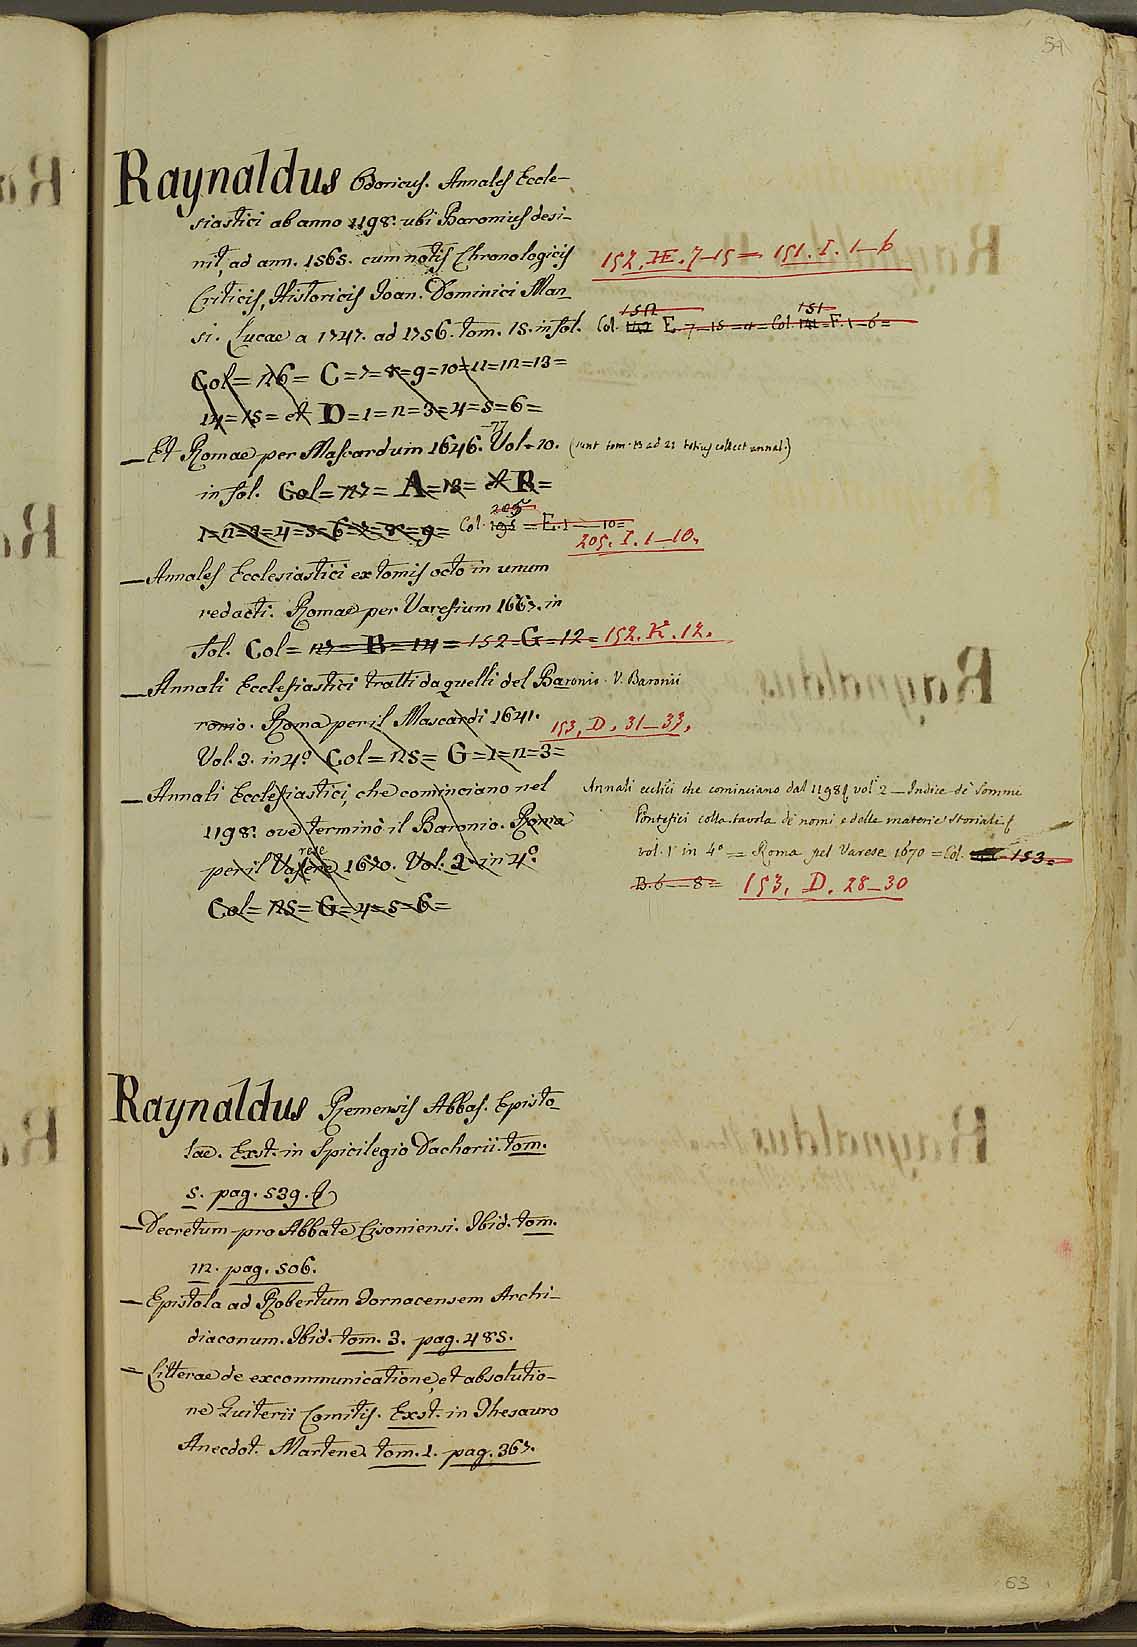 54
Raynaldus Odoricus. Annales Eccle-
siastici ab anno 1198. ubi Baronius desi-
nit, ad ann. 1565. cum notis Chronologicis
Criticis, Historicis Joan. Dominici Man-
si. Lucae a 1747. ad 1756. tom. 15. in fol.
152. 7-15 = 151. I. 1-6
152 151
Col. E. 7-15 = Col. = F. 1-6 =
Col = 26 = C = 7 = 8 = 9 = 10 = 11 = 12 = 13 =
14 = 15 = et D = 1 = 2 = 3 = 4 = 5 = 6 =
— Et Romae per Mascardum 1646.-77 Vol. 10. (sunt tom. 13 ad 21 totius collect annal.)
in fol. Col = 27 = A = 13 = et B =
1 = 2 = 3 = 4 = 5 = 6 = 7 = 8 = 9 = Col. 195 = E. 1 — 10 =
205
205. I. 1-10.
— Annales Ecclesiastici ex tomis octo in unum
redacti. Romae per Varesium 1667. in
fol. Col = 27 = B = 14 = 152 - G = 12 = 152. K. 12.
— Annali Ecclesiastici tratti da quelli del Baronio. V. Baronii
ronio. Roma per il Mascardi 1641.
153, D. 31-33.
Vol. 3. in 4º Col = 25 = G = 1 = 2 = 3 =
— Annali Ecclesiastici, che cominciano nel
1198. ove terminò il Baronio. Roma
rese
per il 1670. Vol. 2. in 4º.
Col = 25 = G = 4 = 5 = 6 =
Annali eccl'ici che cominciano dal 1198 vol. 2 — Indice de' Sommi
Pontefici colla tavola de' nomi e delle materie storiali
vol. 1º in 4º = Roma pel Varese 1670 = Col. 153 =
B. 6 — 8 = 153. D. 28-30
Raynaldus Remensis Abbas. Episto-
lae. Exst. in Spicilegio Dacherii. tom.
5. pag. 539.
— Decretum pro Abbate Cisoniensi. Ibid. tom.
12. pag. 506.
— Epistola ad Robertum Tornacensem Archi-
diaconum. Ibid. tom. 3. pag. 485.
= Litterae de excommunicatione, et absolutio-
ne Guiterii Comitis. Exst. in Thesauro
Anecdot. Martene tom. 1. pag. 367.
63